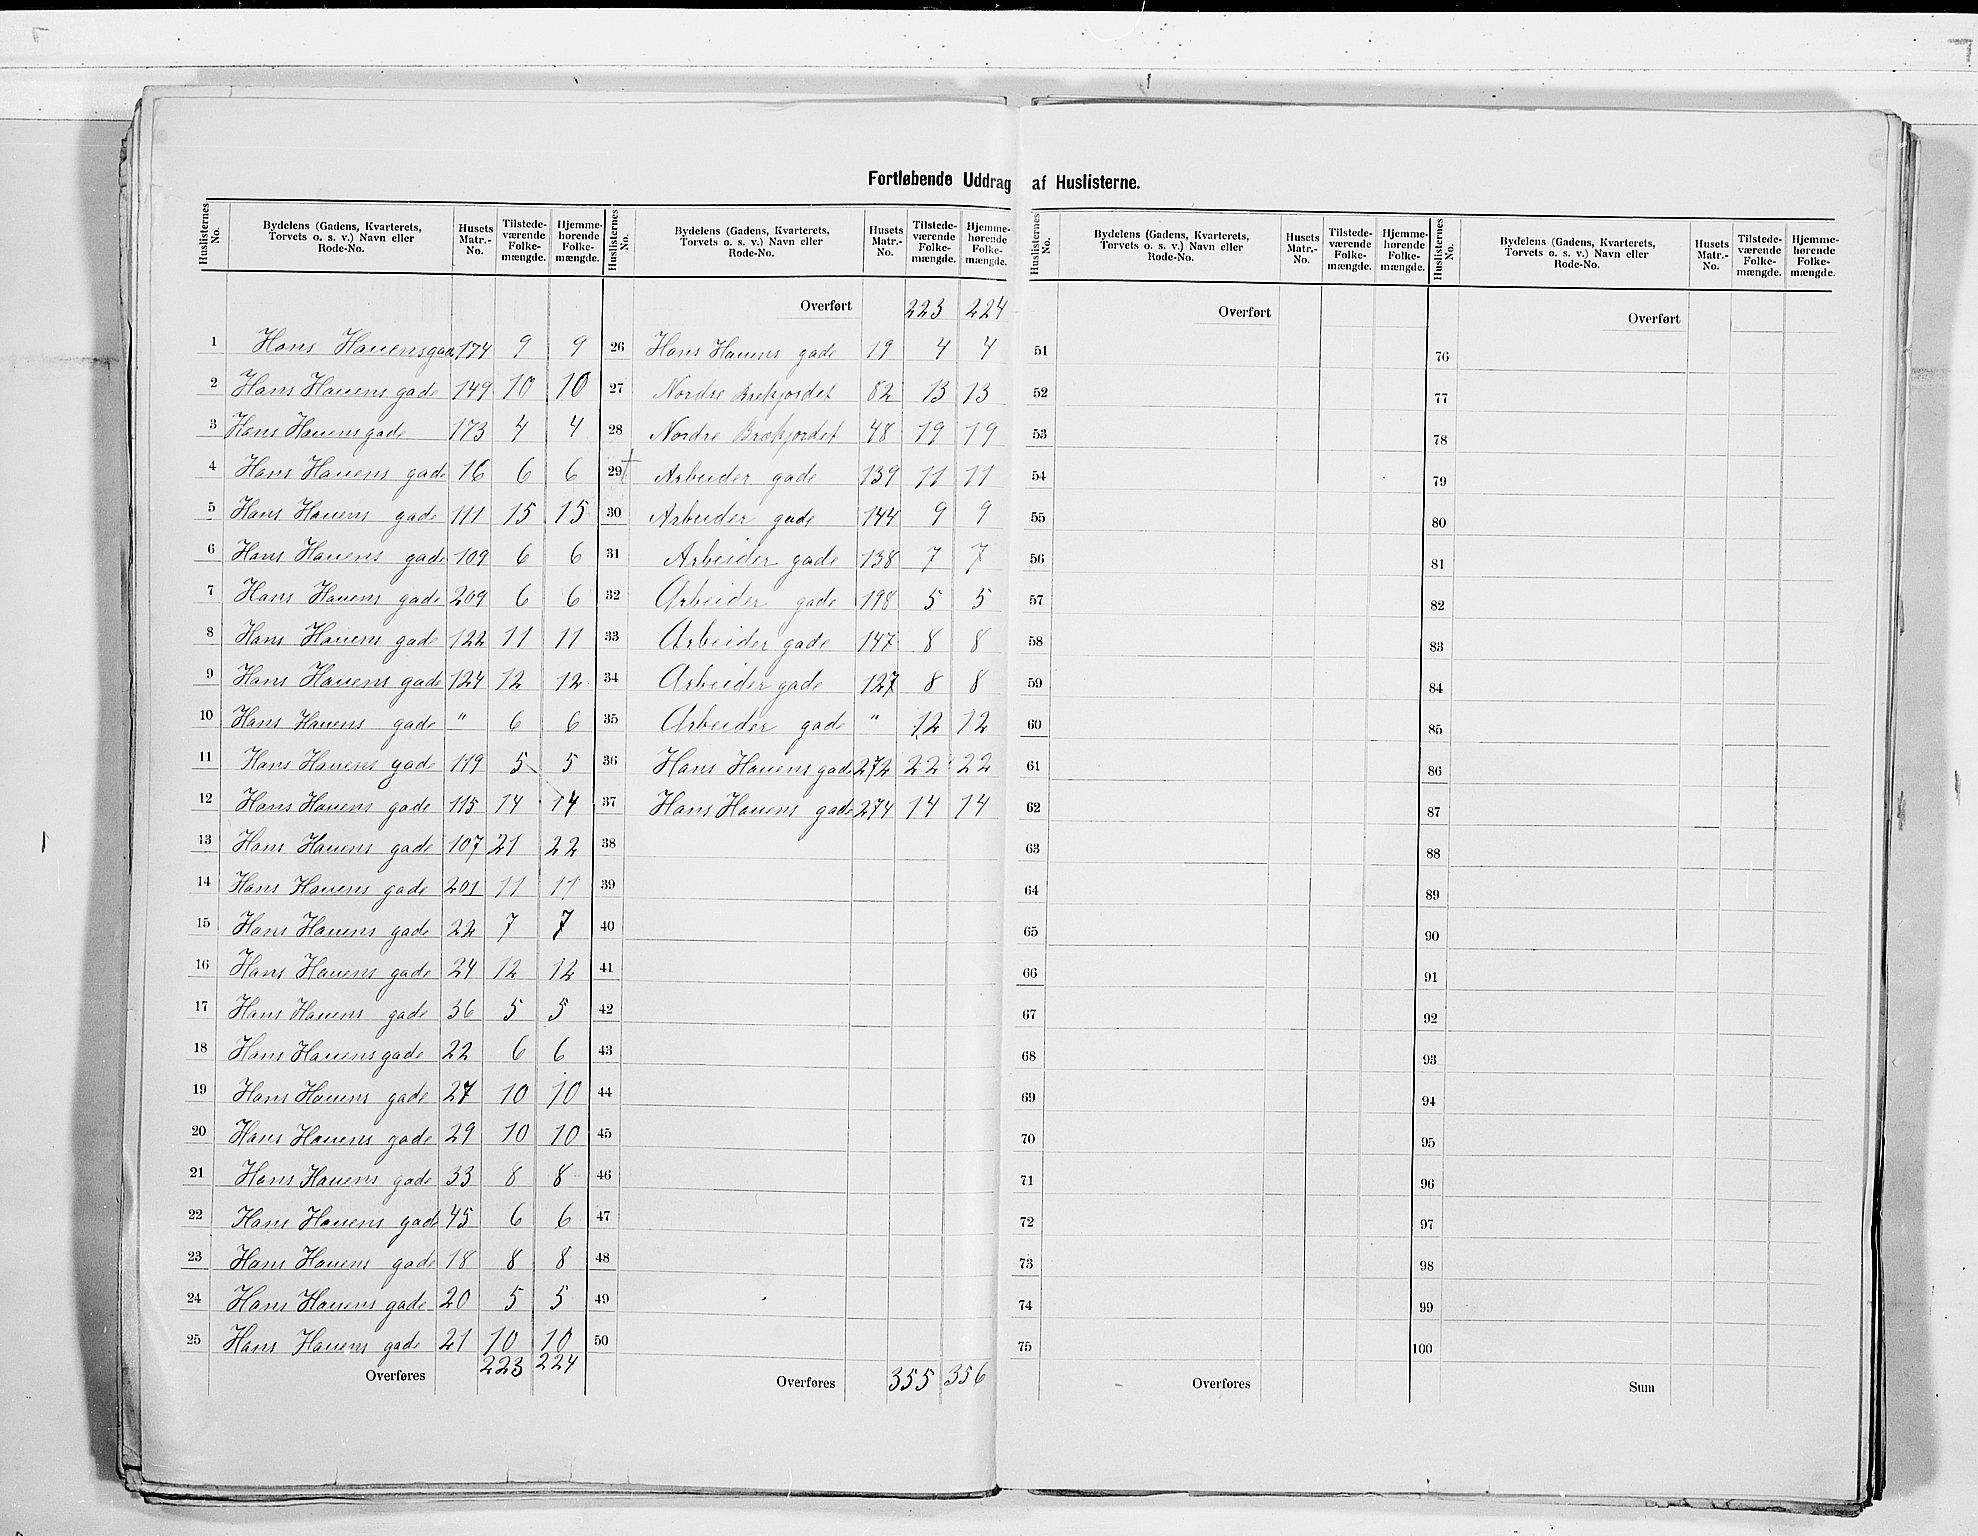 Fortløbende Uddrag af Huslisterne.
Huslisternes No. Bydelens (Gadens, Kvarterets, Torvets o. s. v.) Navn eller Rode-No. Husets Matr.-No. Tilstedeværende Folkemængde. Hjemmehørende Folkemængde.
1 Hans Hauensgade 174 9 9
2 Hans Hauens gade 149 10 10
3 Hans Hauens gade 173 4 4
4 Hans Hauens gade 16 6 6
5 Hans Hauens gade 111 15 15
6 Hans Hauens gade 109 6 6
7 Hans Hauens gade 209 6 6
8 Hans Hauens gade 122 11 11
9 Hans Hauens gade 124 12 12
10 Hans Hauens gade " 6 6
11 Hans Hauens gade 119 5 5
12 Hans Hauens gade 115 14 14
13 Hans Hauens gade 107 21 22
14 Hans Hauens gade 201 11 11
15 Hans Hauens gade 22 7 7
16 Hans Hauens gade 24 12 12
17 Hans Hauens gade 36 5 5
18 Hans Hauens gade 22 6 6
19 Hans Hauens gade 27 10 10
20 Hans Hauens gade 29 10 10
21 Hans Hauens gade 33 8 8
22 Hans Hauens gade 45 6 6
23 Hans Hauens gade 18 8 8
24 Hans Hauens gade 20 5 5
25 Hans Hauens gade 21 10 10
Overføres 223 224
Huslisternes No. Bydelens (Gadens, Kvarterets, Torvets o. s. v.) Navn eller Rode-No. Husets Matr.-No. Tilstedeværende Folkemængde. Hjemmehørende Folkemængde.
Overført 223 224
26 Hans Hauens gade 19 4 4
27 Nordre Brekjordet 82 13 13
28 Nordre Brækjordet 48 19 19
29 Arbeider gade 139 11 11
30 Arbeider gade 144 9 9
31 Arbeider gade 138 7 7
32 Arbeider gade 198 5 5
33 Arbeider gade 147 8 8
34 Arbeider gade 127 8 8
35 Arbeider gade " 12 12
36 Hans Hauens gade 272 22 22
37 Hans Hauens gade 274 14 14
38
39
40
41
42
43
44
45
46
47
48
49
50
Overføres 355 356
Huslisternes No. Bydelens (Gadens, Kvarterets, Torvets o. s. v.) Navn eller Rode-No. Husets Matr.-No. Tilstedeværende Folkemængde. Hjemmehørende Folkemængde.
Overført
51
52
53
54
55
56
57
58
59
60
61
62
63
64
65
66
67
68
69
70
71
72
73
74
75
Overføres
Huslisternes No. Bydelens (Gadens, Kvarterets, Torvets o. s. v.) Navn eller Rode-No. Husets Matr.-No. Tilstedeværende Folkemængde. Hjemmehørende Folkemængde.
Overført
76
77
78
79
80
81
82
83
84
85
86
87
88
89
90
91
92
93
94
95
96
97
98
99
100
Sum